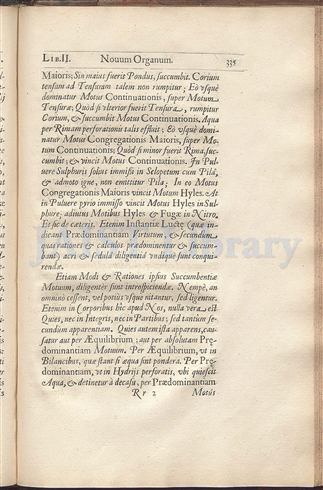 LIB.II. Novum Organum. 335
Maioris; Sin maius fuerit Pondus, succumbit. Corium
tensum ad Tensuram talem non rumpitur; Eo vsque
dominatur Motus Continuationis, super Motum
Tensuræ; Quòd si vlterior fuerit Tensura, rumpitur
Corium, & succumbit Motus Continuationis. Aqua
per Rimam perforationis talis effluit; Eo vsque domi-
natur Motus Congregationis Maioris, super Mo-
tum Continuationis; Quòd si minor fuerit Rima, suc-
cumbit; & vincit Motus Continuationis. In Pul-
uere Sulphuris solius immissi in Sclopetum cum Pilâ,
& admoto igne, non emittitur Pila; In eo Motus
Congregationis Maioris vincit Motum Hyles. At
in Puluere pyrio immisso vincit Motus Hyles in Sul-
phure; adiutus Motibus Hyles & Fugæ in Nitro.
Et sic de cæteris. Etenim Instantiæ Luctæ (quæ in-
dicant Prædominantiam Virtutum, & secundum
quas rationes & calculos prædominentur & succum-
bant) acri & sedulâ diligentiâ vndique sunt conqui-
rendæ.
Etiam Modi & Rationes ipsius Succumbentiæ
Motuum, diligentèr sunt introspiciendæ. Nempè, an
omninò cessent, vel potius vsque nitantur, sed ligentur.
Etenim in Corporibus hîc apud Nos, nulla vera est
Quies, nec in Integris, nec in Partibus; sed tantùm se-
cundùm apparentiam. Quies autem ista apparens, cau-
satur aut per Æquilibrium; aut per absolutam Præ-
dominantiam Motuum. Per Æquilibrium, vt in
Bilancibus, quæ stant si æqua sint pondera. Per Præ-
dominantiam, vt in Hydrijs perforatis, vbi quiescit
Aqua, & detinetur à decasu, per Prædominantiam
Rr 2 Motûs